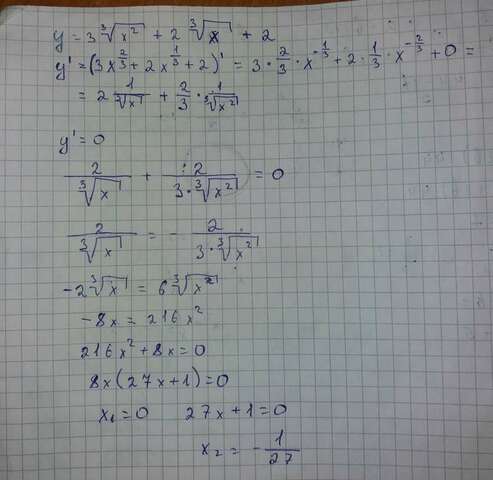 y = 3∛x² + 2∛x + 2
y' = (3x^(2/3) + 2x^(1/3) + 2)' = 3 · 2/3 · x^(-1/3) + 2 · 1/3 · x^(-2/3) + 0 =
= 2 1/∛x + 2/3 · 1/∛x²
y' = 0
2/∛x + 2/(3·∛x²) = 0
2/∛x = - 2/(3·∛x²)
-2∛x = 6∛x²
-8x = 216x²
216x² + 8x = 0
8x(27x+1) = 0
x₁ = 0 27x + 1 = 0
x₂ = - 1/27